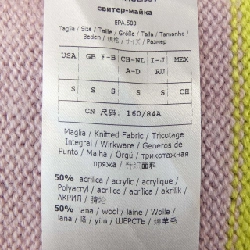 свитер-майка
EPA.503
Taglia / Size / Taille / Größe / Talla / Tamanho /
Beden / 规格 / サイズ / Размер
USA GB F-B CH-NL I-J MEX
A-D RU
S S S S S CH
CN 尺码: 160/84A
Maglia / Knitted Fabric / Tricotage
Integral / Wirkware / Generos de
Punto / Malha / Örgü / трикотажная
пряжа / 针织面料
50% acrilico / acrylic / acrylique /
Polyacryl / acrilico / acrílico / akrilik /
АКРИЛ / 腈纶
50% lana / wool / laine / Wolle /
lana / lã / yün / ШЕРСТЬ / 绵羊毛